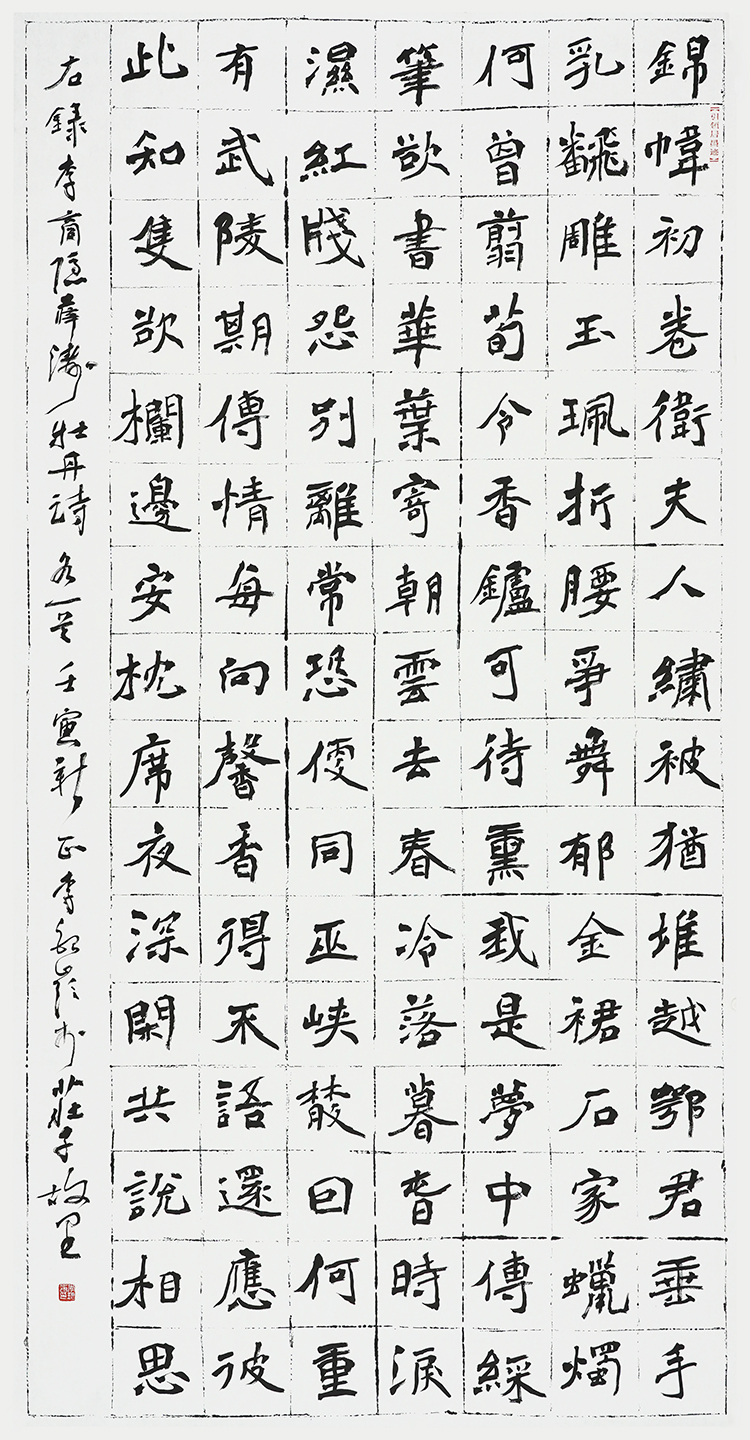 錦幃初卷衛夫人繡被猶堆越鄂君垂手
乳飜雕玉珮折腰爭舞郁金裙石家蠟燭
何曾翦荀令香鑪可待熏我是夢中傳綵
筆欲書華葉寄朝雲去春冷落暮春時淚
濕紅牋怨別離常恐便同巫峽散回何重
有武陵期傳情每向馨香得不語還應彼
此知隻欲欄邊安枕席夜深閑共說相思
右錄李商隱薛濤牡丹詩各一首壬寅新正李於莊子故里